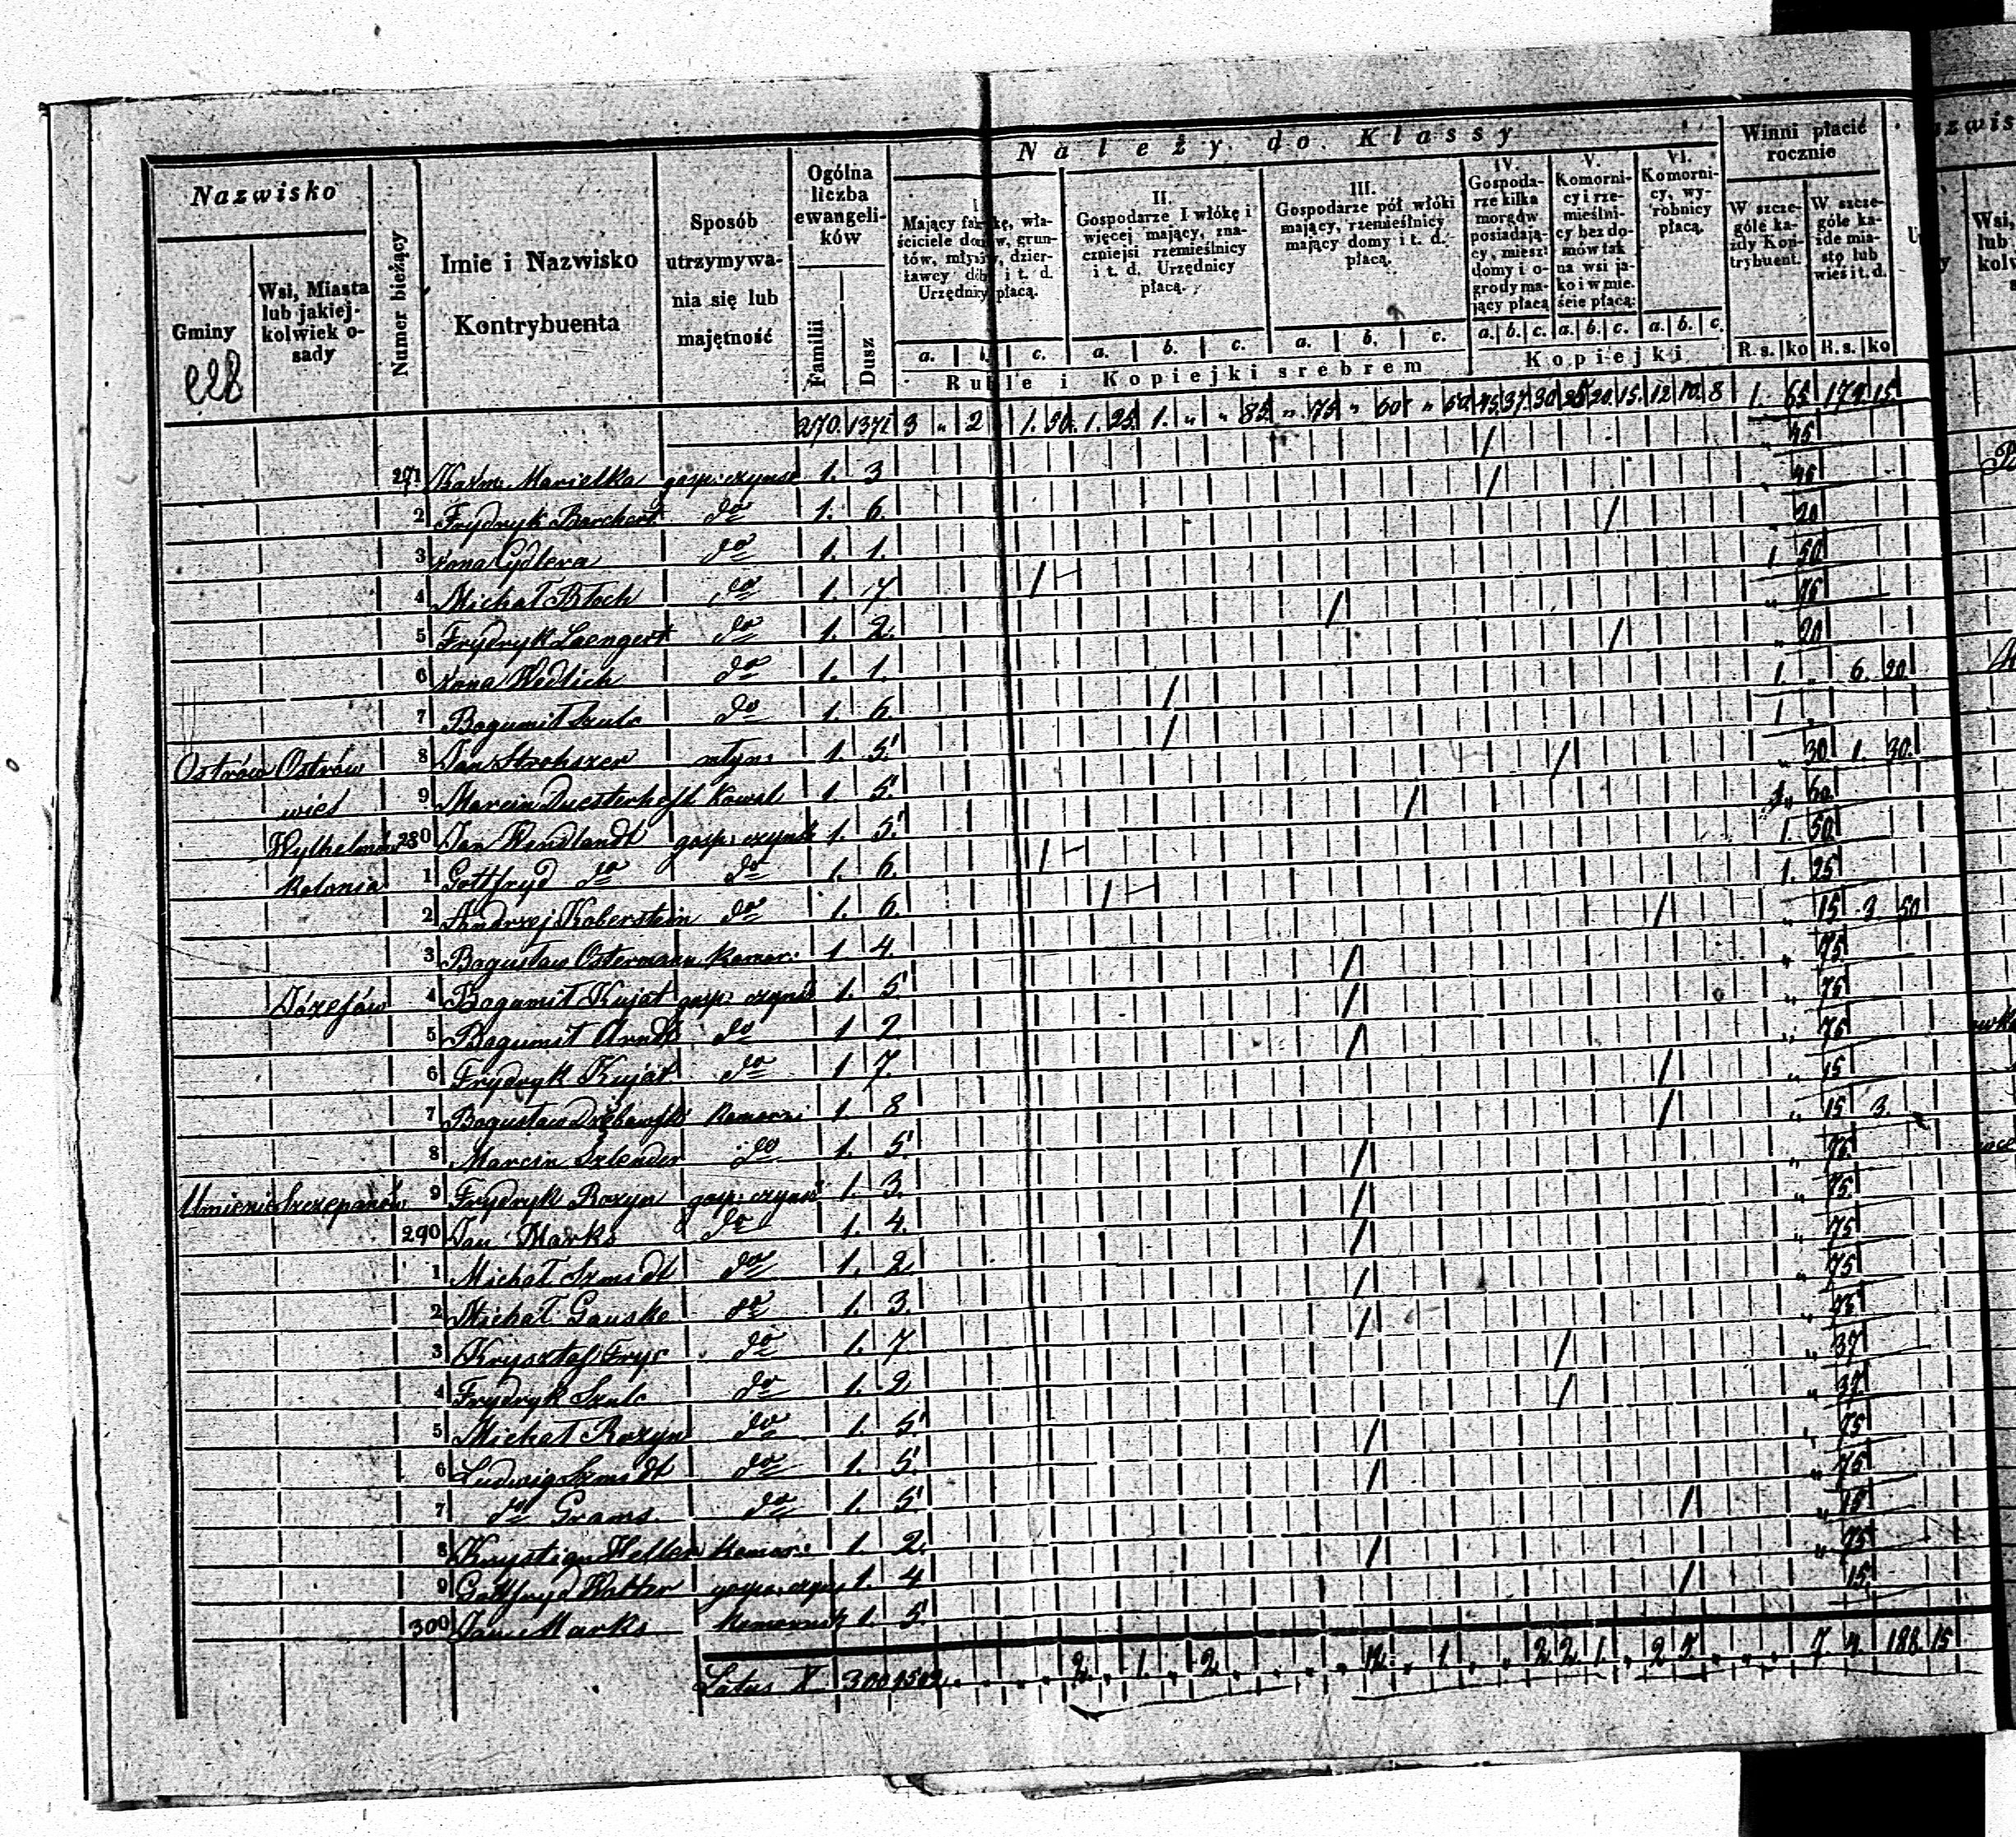 Nazwisko
Gminy
Wsi, Miasta lub jakiej-kolwiek o-sady
Numer bieżący
Imie i Nazwisko Kontrybuenta
Sposób utrzymywa-nia się lub majętność
Ogólna liczba ewangeli-ków
Familii
Dusz
Należy do Klassy
Mający fabrykę, wła-ściciele domów, grun-tów, młynów, dzier-żawcy dóbr i t. d. Urzędnicy płacą.
II. Gospodarze I włókę i więcej mający, zna-czniejsi rzemieślnicy i t. d. Urzędnicy płacą.
III. Gospodarze pół włóki mający, rzemieślnicy mający domy i t. d. płacą.
IV. Gospoda-rze kilka morgów posiadają-cy, miesz: domy i o-grody ma-jący płacą
V. Komorni-cy i rze-mieślni-cy bez do-mów tak na wsi ja-ko i w mie-ście płacą:
VI. Komorni-cy, wy-robnicy płacą.
Winni płacić rocznie
W szcze-góle ka-żdy Kon-trybuent.
W szcze-góle ka-żde mia-sto lub wieś i t. d.
a. b. c. a. b. c. a. b. c. a. b. c. a. b. c. a. b. c.
R. s. ko R. s. ko
Ruble i Kopiejki srebrem
Kopiejki
228
270. 1371 3 „ 2 1. 50. 1. 25. 1. „ „ 85. „ 75 „ 60 „ 50 45 37 30 25 20 15. 12 10. 8 1. 65 179. 15.
271 Marielka gosp: czynsz 1. 3 / 45
2 Frydryk Borchert do 1. 6. / „ 45
3 żona Cydlera do 1. 1. / 20
4 Michał Błoch do 1. 7 / 1 50
5 Frydryk Laengert do 1. 2. / „ 75
6 żona Wedlich do 1. 1. / „ 20
7 Bogumił Szulc do 1. 6. / 1. „ 6. 20.
Ostrów Ostrów 8 Jan Strohszer młyn. 1. 5. / 1 „
wieś 9 Marcin Duesterheft Kowal 1. 5. / „ 30 1. 30.
Wylhelmów 280 Jan Wendlandt gosp: czynsz 1. 5. / „ 60
Kolonia 1 Gottfryd do do 1. 6. / 1. 50
2 Andrzej Koberstein do 1. 6. / 1. 25
3 Bogusław Ostermann komor: 1. 4. / „ 15 3 50
Józefów 4 Bogumił Kujat gosp: czynsz 1. 5. / „ 75
5 Bogumił Arndt do 1 2. / „ 75
6 Frydryk Kujat do 1 7. / „ 75
7 Bogusław komor: 1. 8 / „ 15
8 Marcin Szlender do 1. 5. / „ 15 3.
Umienie Szczepanów 9 Frydryk Rozyn gosp: czynsz 1. 3. / „ 75.
290 Jan Marks do 1. 4. / „ 75
1 Michał Szmidt do 1. 2. / „ 75
2 Michał Gauske do 1. 3. / „ 75
3 Krysztof Fryc do 1. 7. / 75
4 Frydryk Szulc do 1. 2. / „ 37
5 Michał Rozyn do 1. 5. / „ 37
6 Ludwig Szmidt do 1. 5. / „ 75
7 do Grams. do 1. 5. / „ 75
8 Krystian Heller komor: 1. 2. / „ 15
9 Gottfryd Walter gosp: czyn 1. 4 / „ 75
300 Jan Marks komornik 1. 5. / 15.
Latus X 300 1502 2 1 2 12 1 2 2 1 2 7. 188. 15